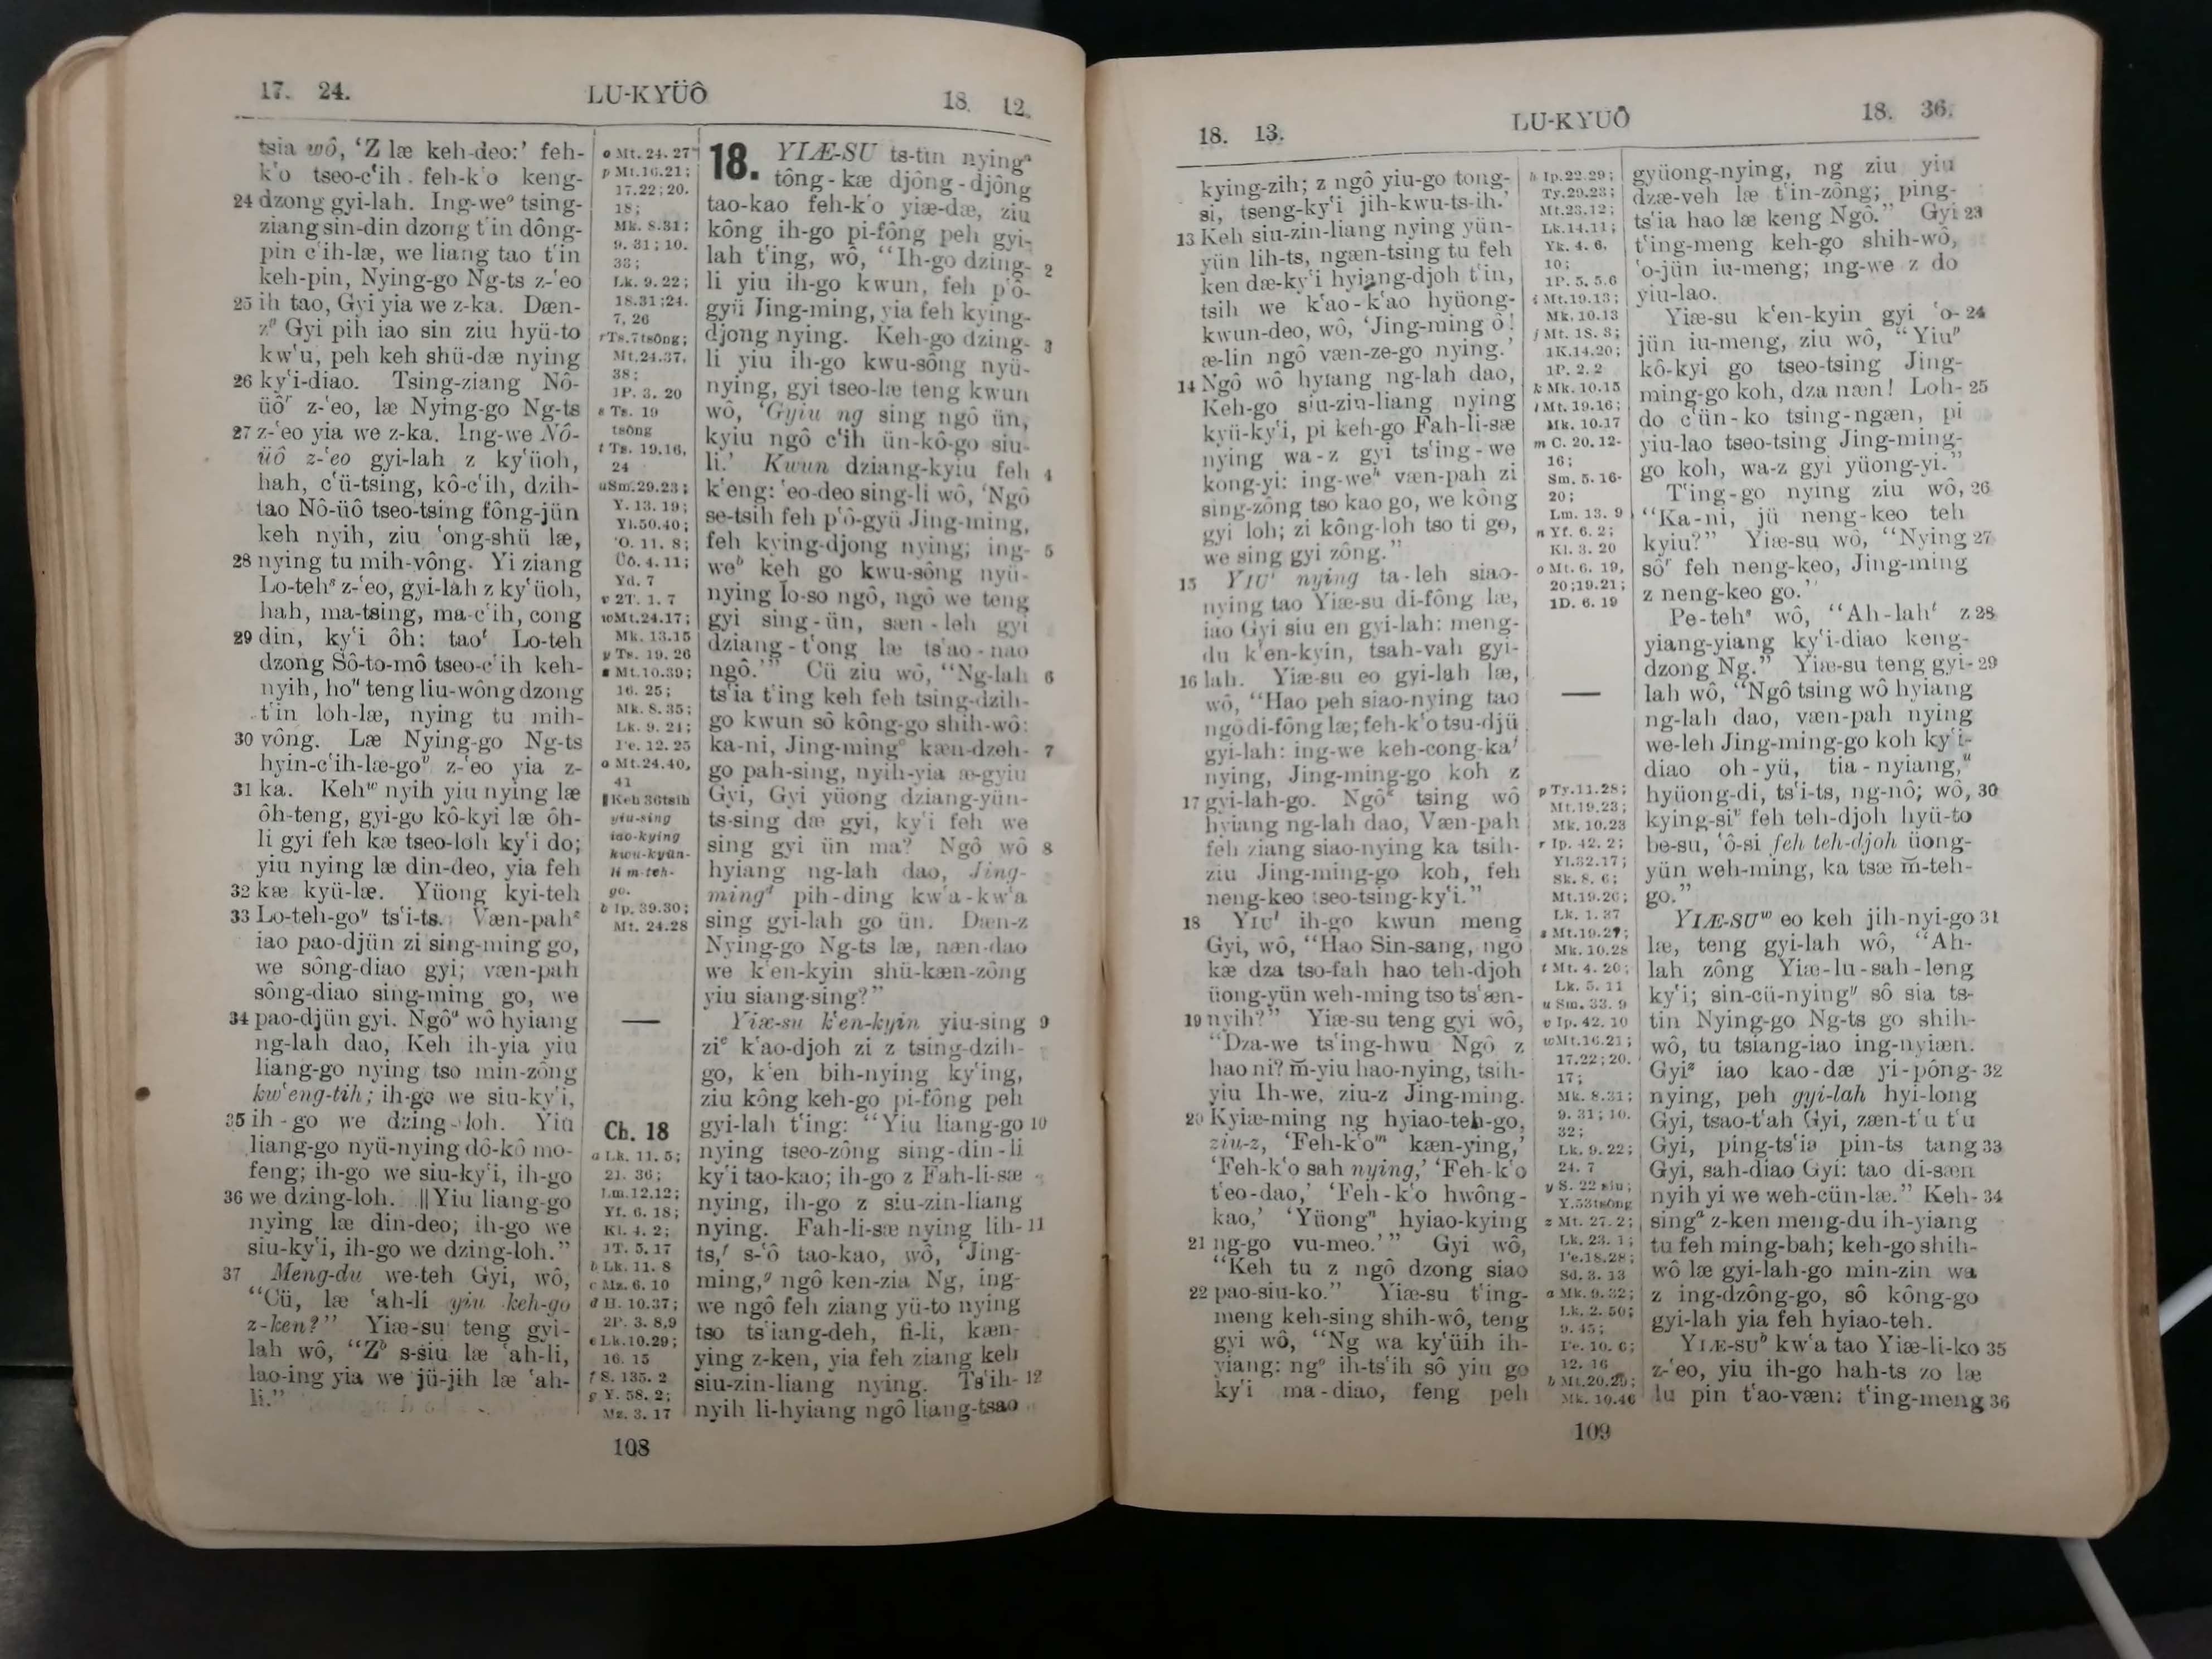 17. 24.
LU-KYÜÔ
18. 12.
tsia wô, ‘Z læ keh-deo:’ feh-
k‘o tseo-c‘ih. feh-k‘o keng-
24 dzong gyi-lah. Ing-weᵒ tsing-
ziang sin-din dzong t‘in dông-
pin c‘ih-læ, we liang tao t‘in
keh-pin, Nying-go Ng-ts z-‘eo
25 ih tao, Gyi yia we z-ka. Dæn-
zᵖ Gyi pih iao sin ziu hyü-to
kw‘u, peh keh shü-dæ nying
26 ky‘i-diao. Tsing-ziang Nô-
üôʳ z-‘eo, læ Nying-go Ng-ts
27 z-‘eo yia we z-ka. Ing-we Nô-
üô z-‘eo gyi-lah z ky‘üoh,
hah, c‘ü-tsing, kô-c‘ih, dzih-
tao Nô-üô tseo-tsing fông-jün
keh nyih, ziu ‘ong-shü læ,
28 nying tu mih-vông. Yi ziang
Lo-tehˢ z-‘eo, gyi-lah z ky‘üoh,
hah, ma-tsing, ma-c‘ih, cong
29 din, ky‘i ôh: taoᵗ Lo-teh
dzong Sô-to-mô tseo-c‘ih keh-
nyih, hoᵘ teng liu-wông dzong
t‘in loh-læ, nying tu mih-
30 vông. Læ Nying-go Ng-ts
hyin-c‘ih-læ-goᵛ z-‘eo yia z-
31 ka. Kehʷ nyih yiu nying læ
ôh-teng, gyi-go kô-kyi læ ôh-
li gyi feh kæ tseo-loh ky‘i do;
yiu nying læ din-deo, yia feh
32 kæ kyü-læ. Yüong kyi-teh
33 Lo-teh-goʸ ts‘i-ts. Væn-pahᶻ
iao pao-djün zi sing-ming go,
we sông-diao gyi; væn-pah
sông-diao sing-ming go, we
34 pao-djün gyi. Ngôᵃ wô hyiang
ng-lah dao, Keh ih-yia yiu
liang-go nying tso min-zông
kw‘eng-tih; ih-go we siu-ky‘i,
35 ih-go we dzing-loh. Yiu
liang-go nyü-nying dô-kô mo-
feng; ih-go we siu-ky‘i, ih-go
36 we dzing-loh. ‖Yiu liang-go
nying læ din-deo; ih-go we
siu-ky‘i, ih-go we dzing-loh.”
37 Meng-du we-teh Gyi, wô,
“Cü, læ ‘ah-li yiu keh-go
z-ken?” Yiæ-su teng gyi-
lah wô, “Zᵇ s-siu læ ‘ah-li,
lao-ing yia we jü-jih læ ‘ah-
li.”
o Mt. 24. 27
p Mt.16.21;
17.22;20.
18;
Mk. 8.31;
9. 31; 10.
33;
Lk. 9. 22;
18.31;24.
7, 26
r Ts.7tsông;
Mt.24.37,
38;
1P. 3. 20
s Ts. 19
tsông
t Ts. 19.16,
24
u Sm.29.23;
Y. 13. 19;
Yl.50.40;
‘O. 11. 8;
Üô. 4. 11;
Yd. 7
v 2T. 1. 7
w Mt.24.17;
Mk. 13.15
y Ts. 19. 26
z Mt.10.39;
16. 25;
Mk. 8. 35;
Lk. 9. 24;
I‘e. 12. 25
a Mt.24.40,
41
‖ Keh 36tsih
yiu-sing
iao-kying
kwu-kyün-
li m-teh-
go.
b Ip. 39.30;
Mt. 24.28
Ch. 18
a Lk. 11. 5;
21. 36;
Lm.12.12;
Yf. 6. 18;
Kl. 4. 2;
1T. 5. 17
b Lk. 11. 8
c Mz. 6. 10
d H. 10.37;
2P. 3. 8,9
e Lk.10.29;
16. 15
f S. 135. 2
g Y. 58. 2;
Mz. 3. 17
18. YIÆ-SU ts-tin nyingᵃ
tông-kæ djông-djông
tao-kao feh-k‘o yiæ-dæ, ziu
kông ih-go pi-fông peh gyi-
lah t‘ing, wô, “Ih-go dzing- 2
li yiu ih-go kwun, feh p‘ô-
gyü Jing-ming, yia feh kying-
djong nying. Keh-go dzing- 3
li yiu ih-go kwu-sông nyü-
nying, gyi tseo-læ teng kwun
wô, ‘Gyiu ng sing ngô ün,
kyiu ngô c‘ih ün-kô-go siu-
li.’ Kwun dziang-kyiu feh 4
k‘eng: ‘eo-deo sing-li wô, ‘Ngô
se-tsih feh p‘ô-gyü Jing-ming,
feh kying-djong nying; ing- 5
weᵇ keh go kwu-sông nyü-
nying lo-so ngô, ngô we teng
gyi sing-ün, sæn-leh gyi
dziang-t‘ong læ ts‘ao-nao
ngô.’” Cü ziu wô, “Ng-lah 6
ts‘ia t‘ing keh feh tsing-dzih-
go kwun sô kông-go shih-wô:
ka-ni, Jing-mingᶜ kæn-dzeh- 7
go pah-sing, nyih-yia æ-gyiu
Gyi, Gyi yüong dziang-yün-
ts-sing dæ gyi, ky‘i feh we
sing gyi ün ma? Ngô wô 8
hyiang ng-lah dao, Jing-
mingᵈ pih-ding kw‘a-kw‘a
sing gyi-lah go ün. Dæn-z
Nying-go Ng-ts læ, næn-dao
we k‘en-kyin shü-kæn-zông
yiu siang-sing?”
Yiæ-su k‘en-kyin yiu-sing 9
ziᵉ k‘ao-djoh zi z tsing-dzih-
go, k‘en bih-nying ky‘ing,
ziu kông keh-go pi-fông peh
gyi-lah t‘ing: “Yiu liang-go 10
nying tseo-zông sing-din-li
ky‘i tao-kao; ih-go z Fah-li-sæ
nying, ih-go z siu-zin-liang
nying. Fah-li-sæ nying lih- 11
ts,ᶠ s-‘ô tao-kao, wô, ‘Jing-
ming,ᵍ ngô ken-zia Ng, ing-
we ngô feh ziang yü-to nying
tso ts‘iang-deh, fi-li, kæn-
ying z-ken, yia feh ziang keh
siu-zin-liang nying. Ts‘ih- 12
nyih li-hyiang ngô liang-tsao
108
18. 13.
LU-KYUÔ
18. 36.
kying-zih; z ngô yiu-go tong-
si, tseng-ky‘i jih-kwu-ts-ih.’
13 Keh siu-zin-liang nying yün-
yün lih-ts, ngæn-tsing tu feh
ken dæ-ky‘i hyiang-djoh t‘in,
tsih we k‘ao-k‘ao hyüong-
kwun-deo, wô, ‘Jing-ming ô!
æ-lin ngô væn-ze-go nying.’
14 Ngô wô hyiang ng-lah dao,
Keh-go siu-zin-liang nying
kyü-ky‘i, pi keh-go Fah-li-sæ
nying wa-z gyi ts‘ing-we
kong-yi: ing-weʰ væn-pah zi
sing-zông tso kao go, we kông
gyi loh; zi kông-loh tso ti go,
we sing gyi zông.”
15 YIUⁱ nying ta-leh siao-
nying tao Yiæ-su di-fông læ,
iao Gyi siu en gyi-lah: meng-
du k‘en-kyin, tsah-vah gyi-
16 lah. Yiæ-su eo gyi-lah læ,
wô, “Hao peh siao-nying tao
ngô di-fông læ; feh-k‘o tsu-djü
gyi-lah: ing-we keh-cong-kaʲ
nying, Jing-ming-go koh z
17 gyi-lah-go. Ngôᵏ tsing wô
hyiang ng-lah dao, Væn-pah
feh ziang siao-nying ka tsih-
ziu Jing-ming-go koh, feh
neng-keo tseo-tsing-ky‘i.”
18 YIUˡ ih-go kwun meng
Gyi, wô, “Hao Sin-sang, ngô
kæ dza tso-fah hao teh-djoh
üong-yün weh-ming tso ts‘æn-
19 nyih?” Yiæ-su teng gyi wô,
“Dza-we ts‘ing-hwu Ngô z
hao ni? m̄-yiu hao-nying, tsih-
yiu Ih-we, ziu-z Jing-ming.
20 Kyiæ-ming ng hyiao-teh-go,
ziu-z, ‘Feh-k‘oᵐ kæn-ying,’
‘Feh-k‘o sah nying,’ ‘Feh-k‘o
t‘eo-dao,’ ‘Feh-k‘o hwông-
kao,’ ‘Yüongⁿ hyiao-kying
21 ng-go vu-meo.’” Gyi wô,
“Keh tu z ngô dzong siao
22 pao-siu-ko.” Yiæ-su t‘ing-
meng keh-sing shih-wô, teng
gyi wô, “Ng wa ky‘üih ih-
yiang: ngᵒ ih-ts‘ih sô yiu go
ky‘i ma-diao, feng peh
h Ip.22.29;
Ty.29.23;
Mt.23.12;
Lk.14.11;
Yk. 4. 6,
10;
1P. 5. 5.6
i Mt.19.13;
Mk. 10.13
j Mt. 18. 3;
1K.14.20;
1P. 2. 2
k Mk. 10.15
l Mt. 19.16;
Mk. 10.17
m C. 20. 12-
16;
Sm. 5. 16-
20;
Lm. 13. 9
n Yf. 6. 2;
Kl. 3. 20
o Mt. 6. 19,
20;19.21;
1D. 6. 19
p Ty.11.28;
Mt.19.23;
Mk. 10.23
r Ip. 42. 2;
Yl.32.17;
Sk. 8. 6;
Mt.19.26;
Lk. 1. 37
s Mt.19.27;
Mk. 10.28
t Mt. 4. 20;
Lk. 5. 11
u Sm. 33. 9
v Ip. 42. 10
w Mt.16.21;
17.22;20.
17;
Mk. 8.31;
9. 31; 10.
32;
Lk. 9. 22;
24. 7
y S. 22 siu;
Y.53tsông
z Mt. 27. 2;
Lk. 23. 1;
I‘e.18.28;
Sd. 3. 13
a Mk. 9. 32;
Lk. 2. 50;
9. 45;
I‘e. 10. 6;
12. 16
b Mt.20.29;
Mk. 10.46
gyüong-nying, ng ziu yiu
dzæ-veh læ t‘in-zông; ping-
ts‘ia hao læ keng Ngô.” Gyi 23
t‘ing-meng keh-go shih-wô,
‘o-jün iu-meng; ing-we z do
yiu-lao.
Yiæ-su k‘en-kyin gyi ‘o- 24
jün iu-meng, ziu wô, “Yiuᵖ
kô-kyi go tseo-tsing Jing-
ming-go koh, dza næn! Loh- 25
do c‘ün-ko tsing-ngæn, pi
yiu-lao tseo-tsing Jing-ming-
go koh, wa-z gyi yüong-yi.”
T‘ing-go nying ziu wô, 26
“Ka-ni, jü neng-keo teh
kyiu?” Yiæ-su wô, “Nying 27
sôʳ feh neng-keo, Jing-ming
z neng-keo go.”
Pe-tehˢ wô, “Ah-lahᵗ z 28
yiang-yiang ky‘i-diao keng-
dzong Ng.” Yiæ-su teng gyi- 29
lah wô, “Ngô tsing wô hyiang
ng-lah dao, væn-pah nying
we-leh Jing-ming-go koh ky‘i-
diao oh-yü, tia-nyiang,ᵘ
hyüong-di, ts‘i-ts, ng-nô; wô, 30
kying-siᵛ feh teh-djoh hyü-to
be-su, ‘ô-si feh teh-djoh üong-
yün weh-ming, ka tsæ m̄-teh-
go.”
YIÆ-SUʷ eo keh jih-nyi-go 31
læ, teng gyi-lah wô, “Ah-
lah zông Yiæ-lu-sah-leng
ky‘i; sin-cü-nyingʸ sô sia ts-
tin Nying-go Ng-ts go shih-
wô, tu tsiang-iao ing-nyiæn.
Gyiᶻ iao kao-dæ yi-pông- 32
nying, peh gyi-lah hyi-long
Gyi, tsao-t‘ah Gyi, zæn-t‘u t‘u
Gyi, ping-ts‘ia pin-ts tang 33
Gyi, sah-diao Gyi: tao di-sæn
nyih yi we weh-cün-læ.” Keh- 34
singᵃ z-ken meng-du ih-yiang
tu feh ming-bah; keh-go shih-
wô læ gyi-lah-go min-zin wa
z ing-dzông-go, sô kông-go
gyi-lah yia feh hyiao-teh.
YIÆ-SUᵇ kw‘a tao Yiæ-li-ko 35
z-‘eo, yiu ih-go hah-ts zo læ
lu pin t‘ao-væn: t‘ing-meng 36
109